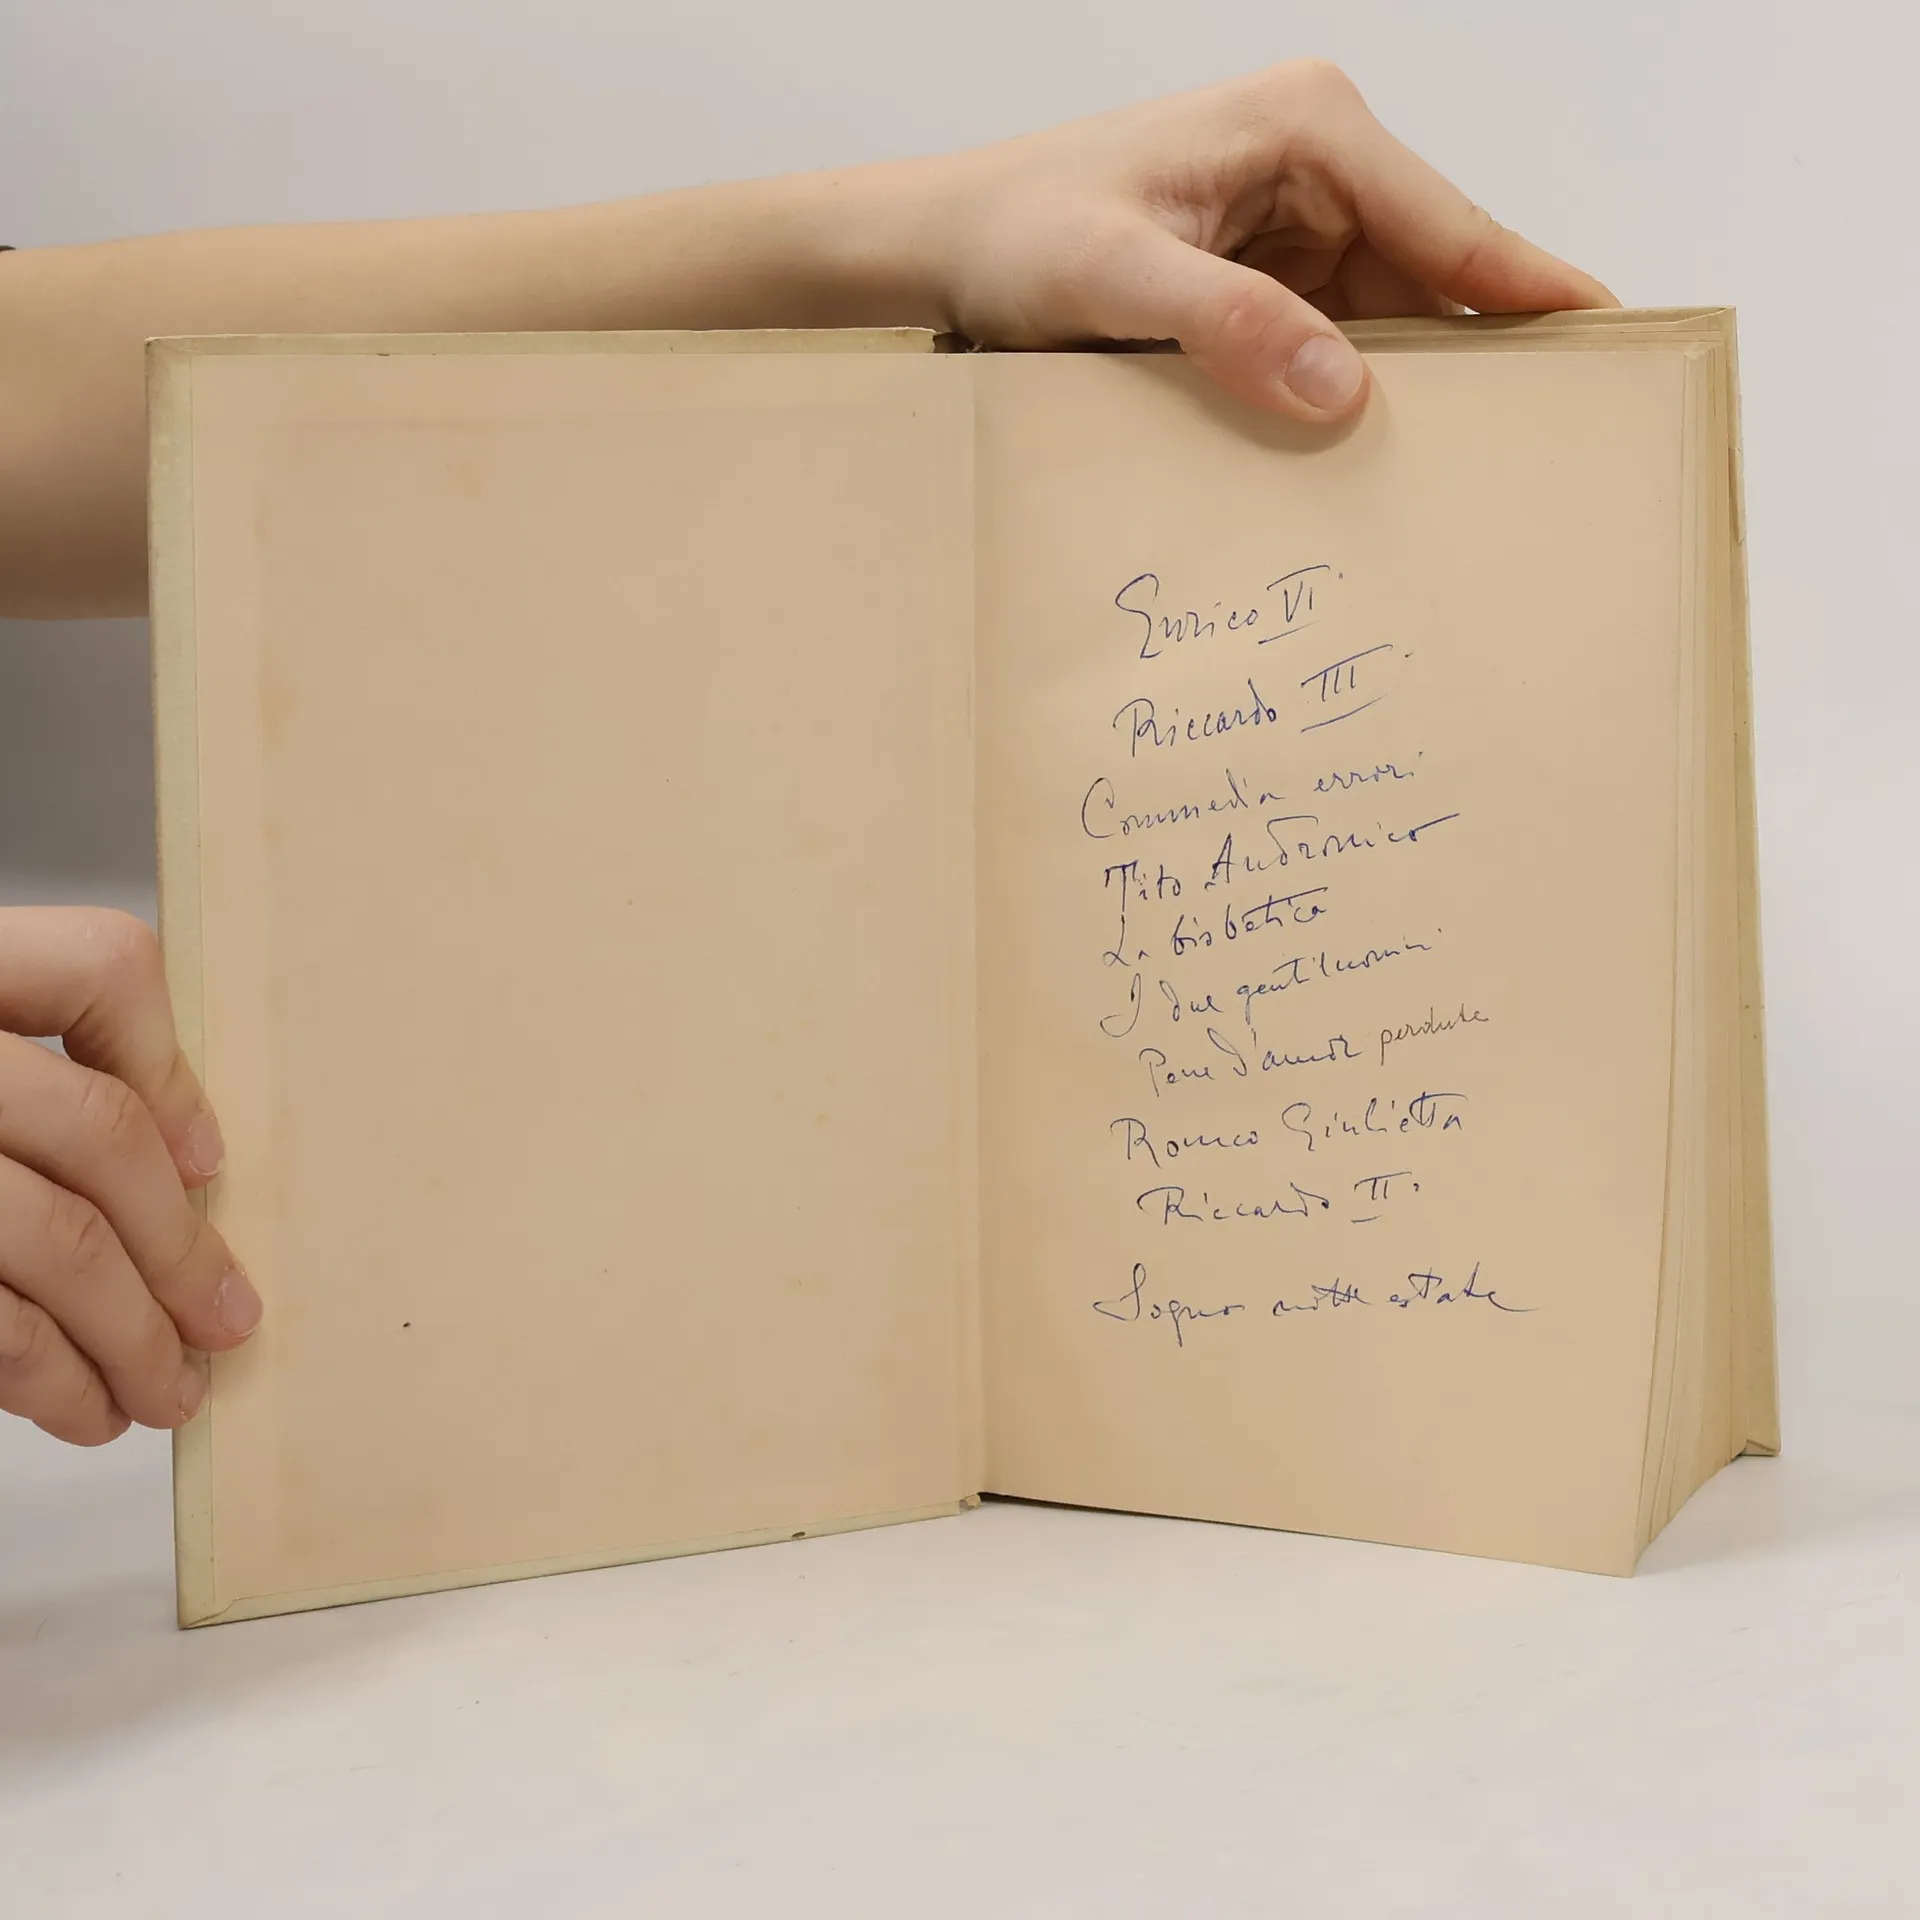 Enrico VI.
Riccardo III.
Commedia errori
Tito Andronico
La bisbetica
I due gentiluomini
Pene d'amor perdute
Romeo Giulietta
Riccardo II.
Sogno notte estate